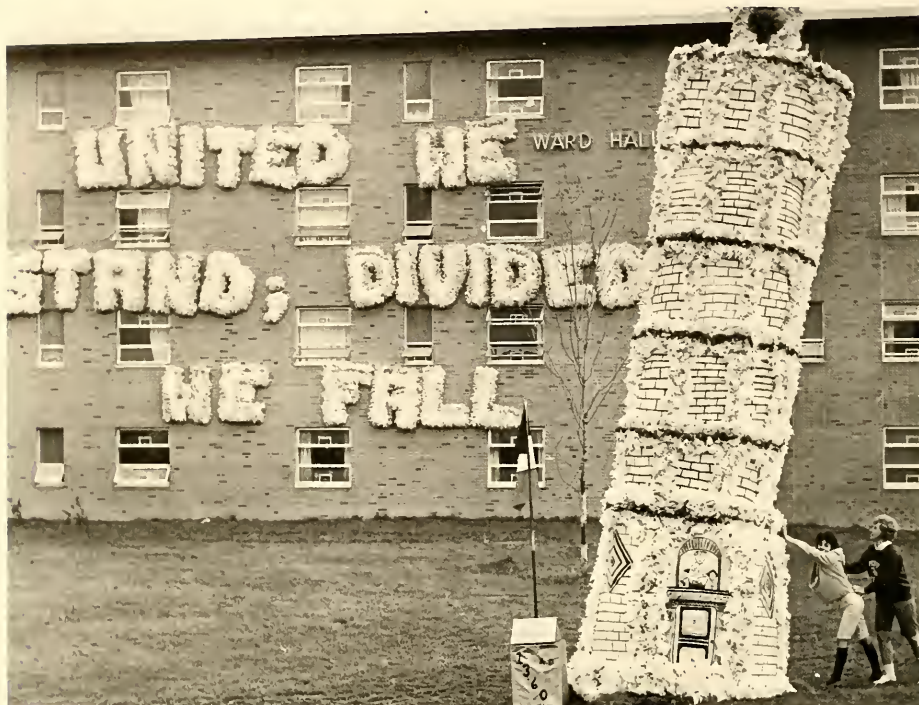 UNITED WE
WARD HALL
STAND; DIVIDED
WE FALL